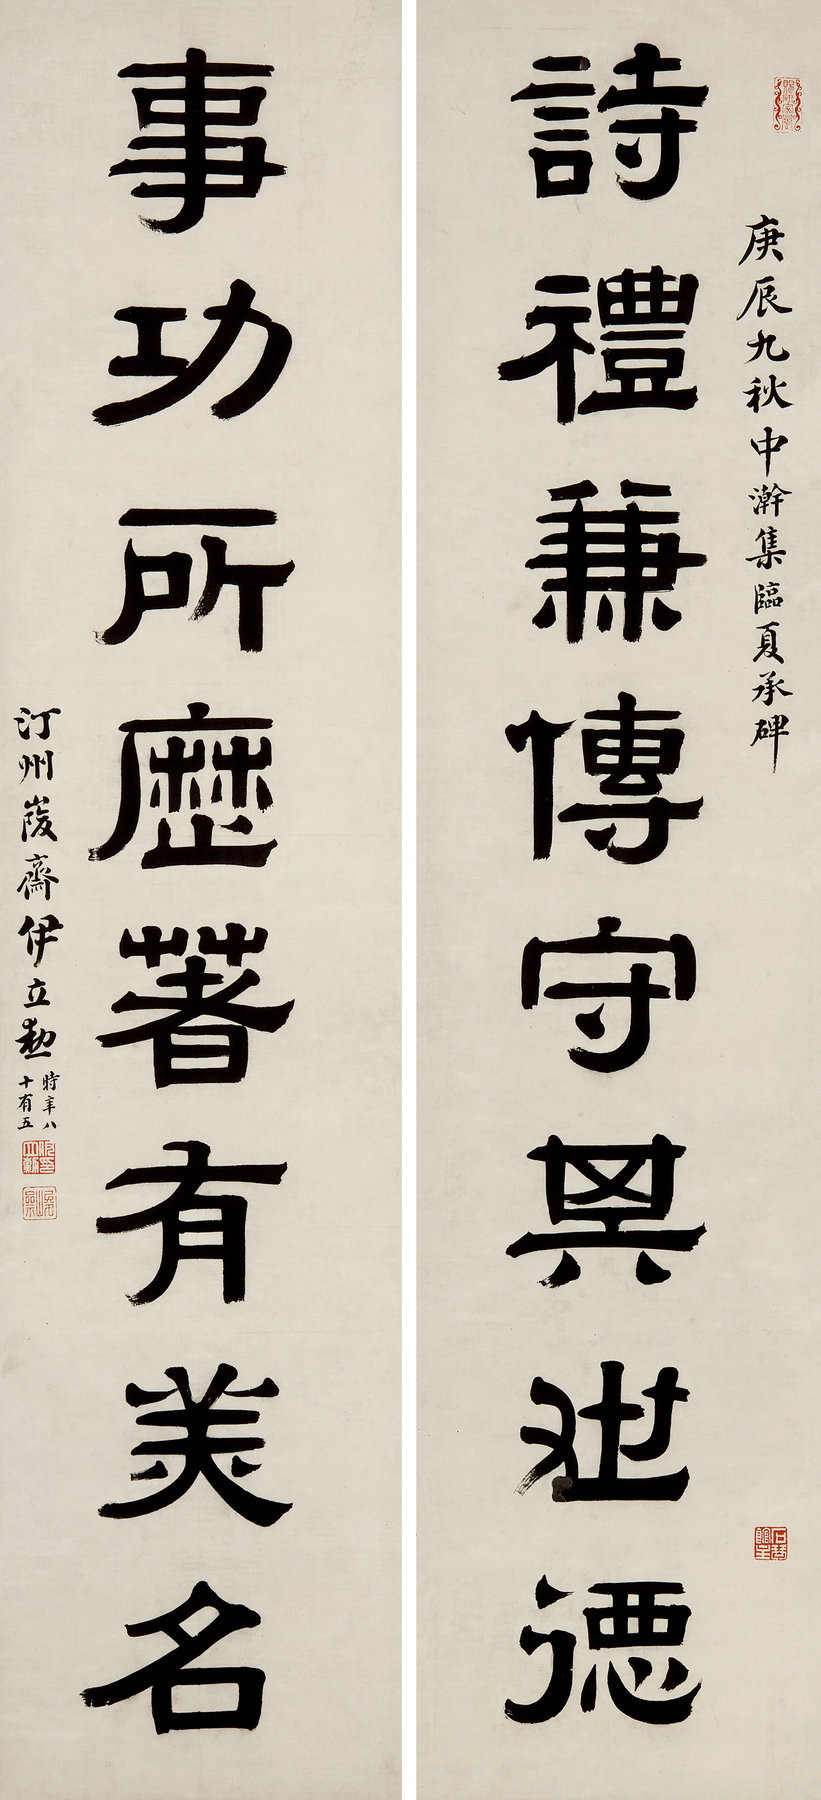 庚辰九秋中澣集臨夏承碑
詩禮兼傳守其世德
事功所歷著有美名
汀州峻齋伊立勳
時年八
十有五